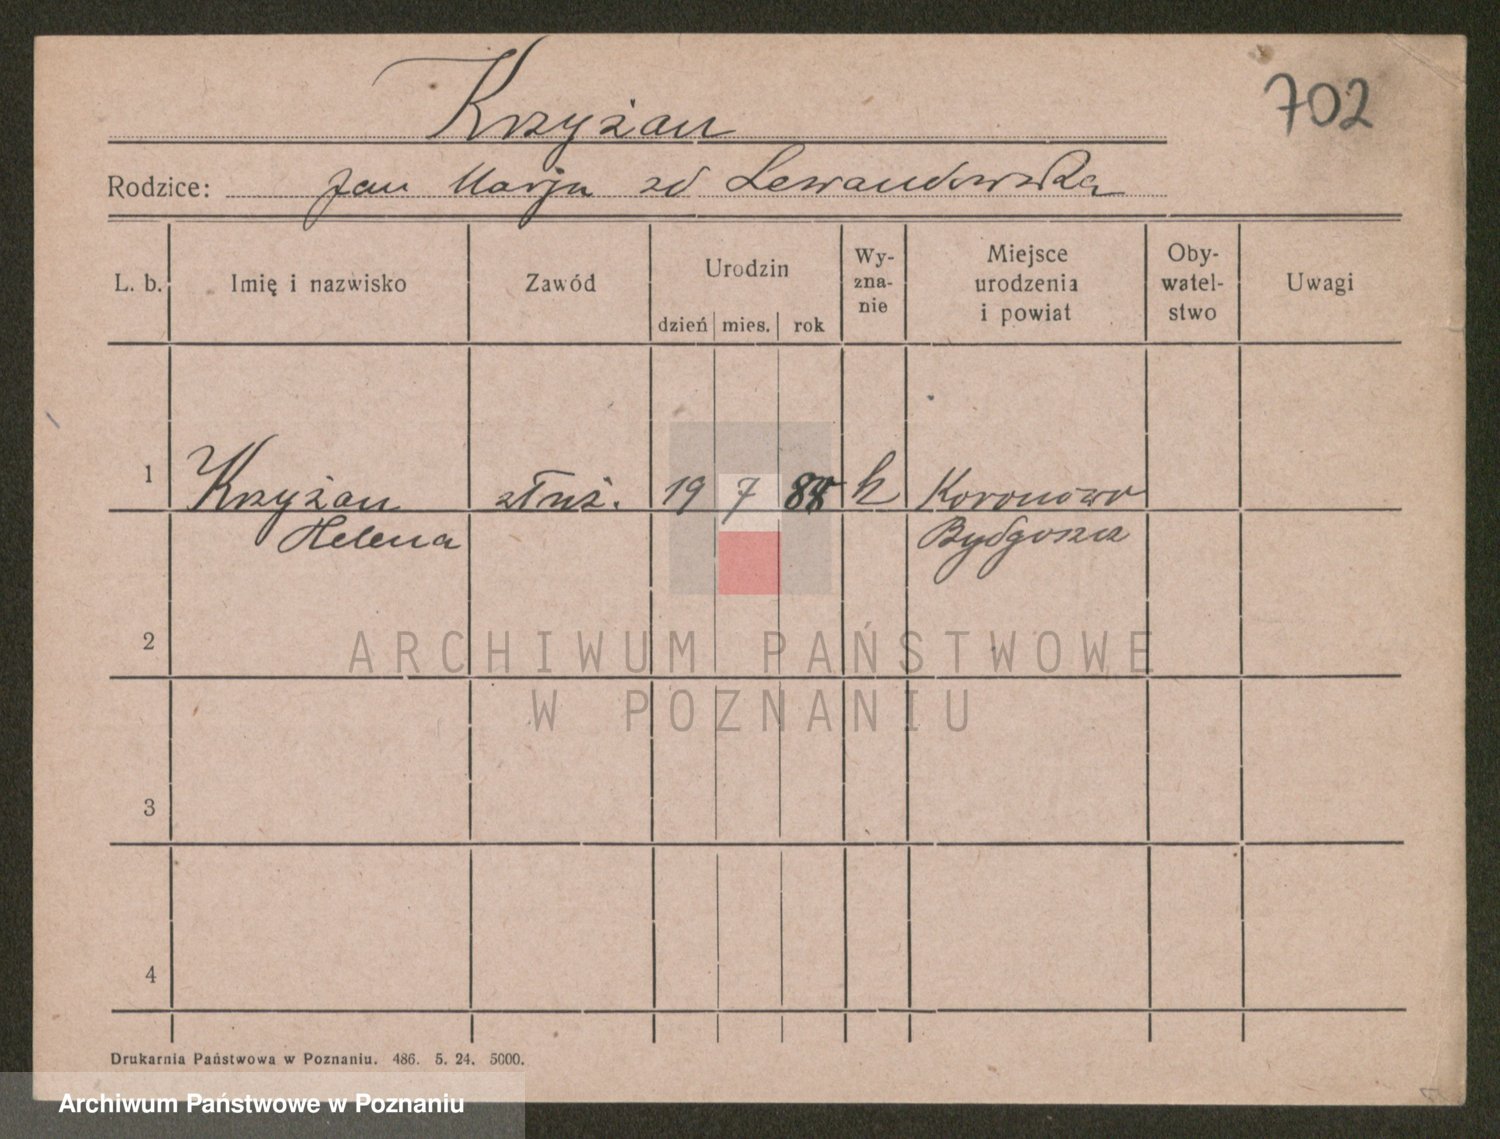 702
Krzyżan
Rodzice: Jan Marja zd Lewandowska
L. b. Imię i nazwisko Zawód Urodzin dzień mies. rok Wy-zna-nie Miejsce urodzenia i powiat Oby-watel-stwo Uwagi
1 Krzyżan służ. 19 7 88 k Koronowo
Helena Bydgoszcz
2
3
4
ARCHIWUM PAŃSTWOWE
W POZNANIU
Drukarnia Państwowa w Poznaniu. 486. 5. 24. 5000.
Archiwum Państwowe w Poznaniu